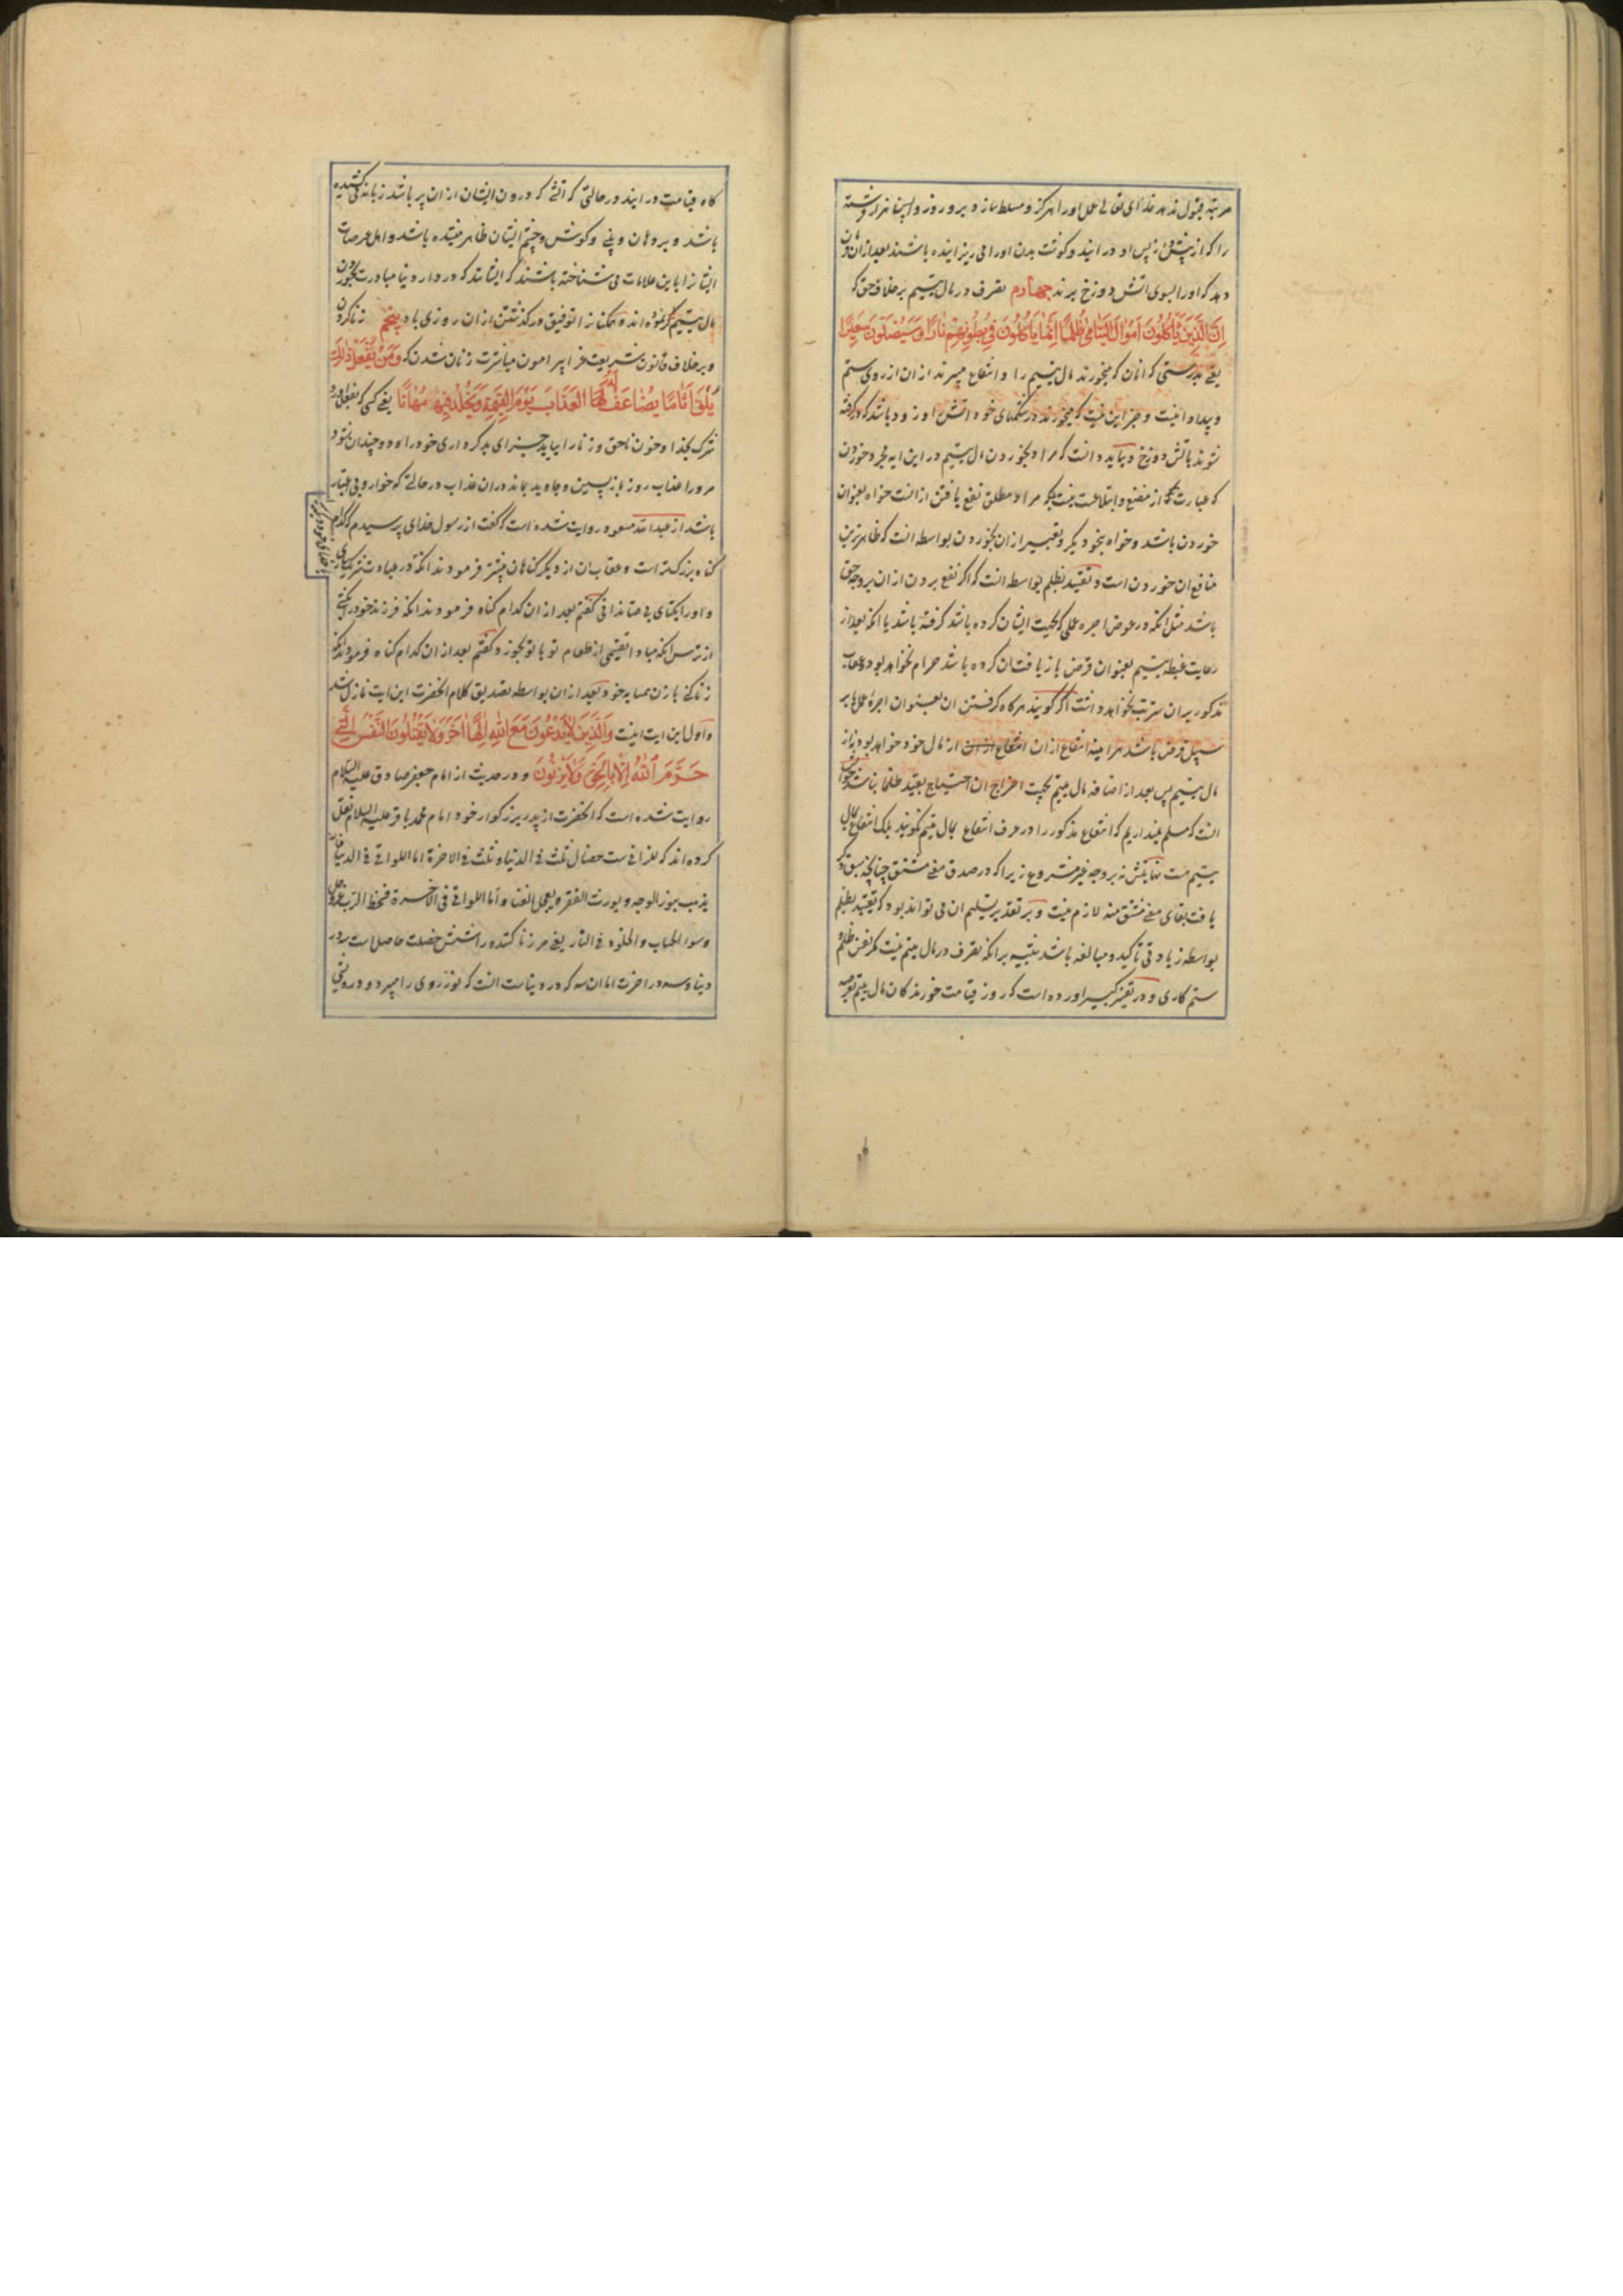 مرتبه قبول ندهد خدای تعالی عمل او را هرگز و مسلط سازد برو روز واپسین هزار فرشته
را که از پیش و از پس او در آیند و گوشت بدن او را می ریزانیده باشند بعد از آن فرمان
دهد که او را بسوی آتش دوزخ برند چهارم تصرف در مال یتیم بر خلاف حق که
إِنَّ الَّذِينَ يَأْكُلُونَ أَمْوَالَ الْيَتَامَىٰ ظُلْمًا إِنَّمَا يَأْكُلُونَ فِي بُطُونِهِمْ نَارًا وَسَيَصْلَوْنَ سَعِيرًا
یعنی بدرستی که آنان که میخورند مال یتیم را و انتفاع میبرند از آن از روی ستم
و بیداد اینست و جز این نیست که میخورند در شکمهای خود آتش و زود باشد که در گرفته
شوند باتش دوزخ و بباید دانست که مراد بخوردن مال یتیم در این آیه مجرد خوردن
که عبارت از مضغ و ابتلاعست نیست بلکه مراد مطلق نفع یافتن از انست خواه بعنوان
خوردن باشد و خواه بنحو دیگر و تعبیر از آن بخوردن بواسطه انست که ظاهرترین
منافع آن خوردن است و تقیید بظلم بواسطه انست که اگر نفع بردن از آن بر وجه حق
باشد مثل آنکه در عوض اجره عملی که بجهت ایشان کرده باشد گرفته باشد یا آنکه بعد از
رعایت غبطه یتیم بعنوان قرض بازیافت آن کرده باشد حرام نخواهد بود و عقاب
مذکور بر آن مترتب نخواهد و انتت اگر گویند هرگاه گرفتن آن بعنوان اجرة عمل یا بر
سبیل قرض باشد هر آینه انتفاع از آن انتفاع از مال خود خواهد بود نه از
مال یتیم پس بعد از اضافه مال یتیم بجهت اخراج آن احتیاج بقید ظلما نباشد جواب
انست که مسلم نمیداریم که انتفاع مذکور را در عرف انتفاع بمال یتیم نگویند بلکه انتفاع بمال
یتیم هست نهایتش نه بر وجه غیر مشروع زیرا که در صدق معنی مشتق چنانچه سبق ذکر
یافت بقای معنی مشتق منه لازم نیست و بر تقدیر تسلیم آن می تواند بود که تقیید بظلم
بواسطه زیادتی تأکید و مبالغه باشد تنبیه بر آنکه تصرف در مال یتیم نیست مگر نفس ظلم و
ستم کاری و در تفسیر کبیر آورده است که روز قیامت خورندگان مال یتیم بعرصه
گاه قیامت در آیند در حالتی که آتش که درون ایشان از آن پر باشد زبانه می کشیده
باشد و بر دهان و بینی و گوش و چشم ایشان ظاهر میشده باشد و اهل عرصات
ایشانرا باین علامات می شناخته باشند که ایشانند که در دار دنیا مبادرت بخوردن
مال یتیم می نموده اند و همگنانرا توفیق در گذشتن از آن روزی باد پنجم زنا کردن
و بر خلاف قانون شریعت غرا پیرامون مباشرت زنان شدن که وَمَنْ يَفْعَلْ ذَٰلِكَ
يَلْقَ أَثَامًا يُضَاعَفْ لَهُ الْعَذَابُ يَوْمَ الْقِيمَةِ وَيَخْلُدْ فِيهِ مُهَانًا یعنی کسی که بفعل آورد
شرک بخدا و خون ناحق و زنا را بیابد جزای بدکرداری خود را و دو چندان شود
مر او را عذاب روز بازپسین و جاوید بماند در آن عذاب در حالتی که خوار و بی اعتبار
باشد از عبد الله مسعود روایت شده است که گفت از رسول خدای پرسیدم که کدام
گناه بزرگتر است و عقاب آن از دیگر گناهان بیشتر فرمودند آنکه در عبادت شریک سازی
و او را یکتای بی همتا ندانی گفتم بعد از آن کدام گناه فرمودند آنکه فرزند خود را بکشی
از ترس آنکه مبادا لقمه از طعام تو با تو بخورد گفتم بعد از آن کدام گناه فرمودند آنکه
زنا کنی با زن همسایه خود بعد از آن بواسطه تصدیق کلام آنحضرت این آیت نازل شد
و اول این آیت اینست وَالَّذِينَ لَا يَدْعُونَ مَعَ اللَّهِ إِلَٰهًا آخَرَ وَلَا يَقْتُلُونَ النَّفْسَ الَّتِي
حَرَّمَ اللَّهُ إِلَّا بِالْحَقِّ وَلَا يَزْنُونَ و در حدیث از امام جعفر صادق علیه السلام
روایت شده است که آنحضرت از پدر بزرگوار خود امام محمد باقر علیه السلام نقل
کرده اند که للزانی ست خصال ثلث فی الدنیا و ثلث فی الاخرة اما اللواتی فی الدنیا
یذهب بنور الوجه و یورث الفقر و یعجل الفنا و أما اللواتی فی الآخرة فسخط الرب عز و جل
و سوء الحساب و الخلود فی النار یعنی مر زنا کننده را شش خصلت حاصل است سه در
دنیا و سه در آخرت اما آن سه که در دنیاست انست که نور روی را میبرد و درویشی